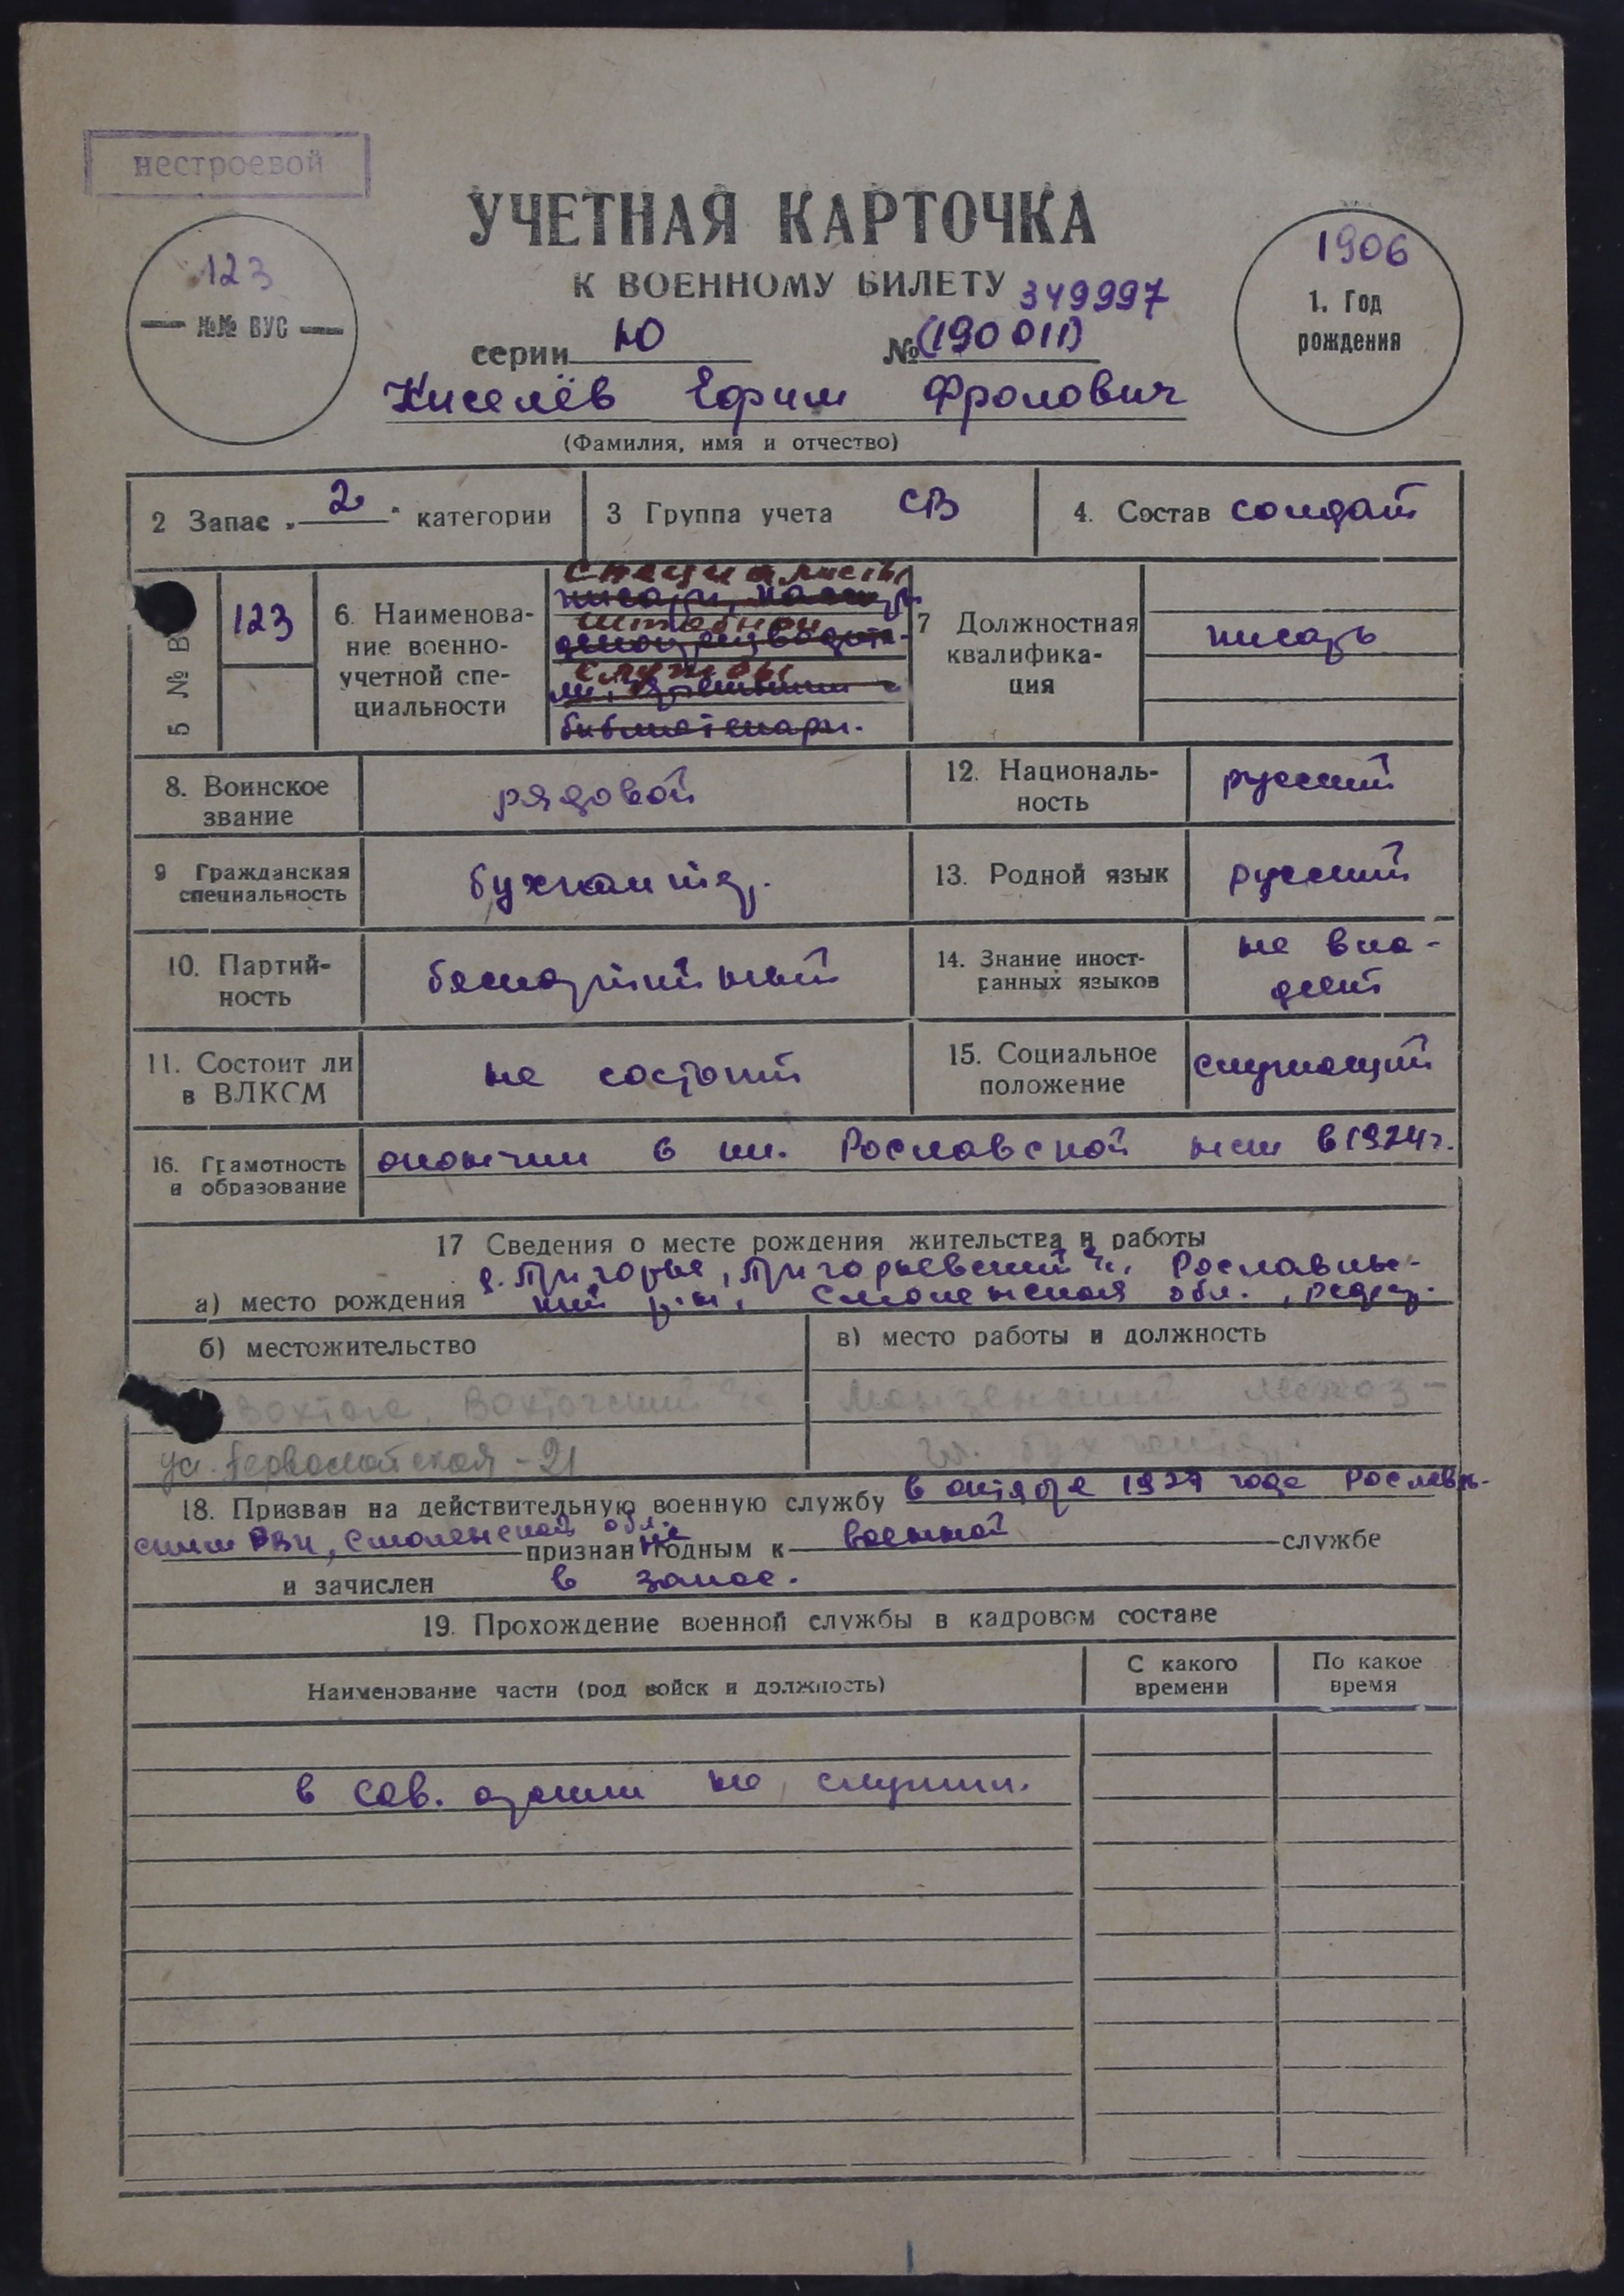 нестроевой
УЧЕТНАЯ КАРТОЧКА
К ВОЕННОМУ БИЛЕТУ 349997
серии Ю № (190011)
Киселёв Ефим Фролович
(Фамилия, имя и отчество)
123
№№ ВУС
1906
1. Год
рождения
2 Запас „ 2 " категории
3 Группа учета СВ
4. Состав солдат
5 № В
123
6. Наименова-
ние военно-
учетной спе-
циальности
специалисты
штабной
службы
библиотекари.
7 Должностная
квалифика-
ция
писарь
8. Воинское
звание
рядовой
12. Националь-
ность
русский
9 Гражданская
специальность
бухгалтер.
13. Родной язык
русский
10. Партий-
ность
беспартийный
14. Знание иност-
ранных языков
не вла-
деет
11. Состоит ли
в ВЛКСМ
не состоит
15. Социальное
положение
служащий
16. Грамотность
и образование
окончил 6 кл. Рославской в 1924 г.
17 Сведения о месте рождения жительства и работы
а) место рождения
д. Пригорье, Пригорьевский Рославль-
ский р-н, Смоленская обл.,
б) местожительство
Вохтога, Вохтогский
ул. Первомайская - 21
в) место работы и должность
Монзенский
гл. бухгалтер.
18. Призван на действительную военную службу в октябре 1927 года Рославль-
ским РВК, Смоленской обл. признан не годным к военной службе
и зачислен в запас.
19. Прохождение военной службы в кадровом составе
Наименование части (род войск и должность)
С какого
времени
По какое
время
в Сов. армии не служил.